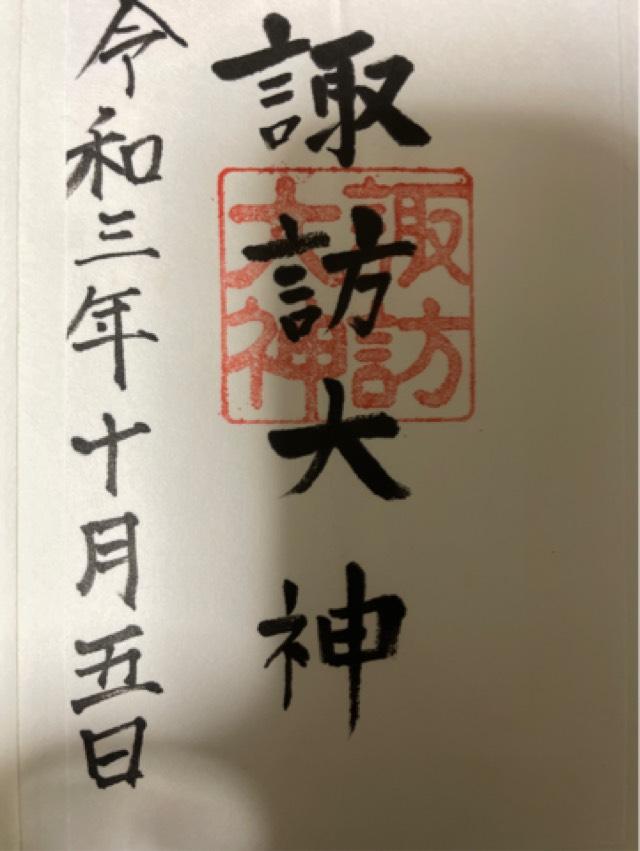 諏訪大神
諏訪
大神
令和三年十月五日